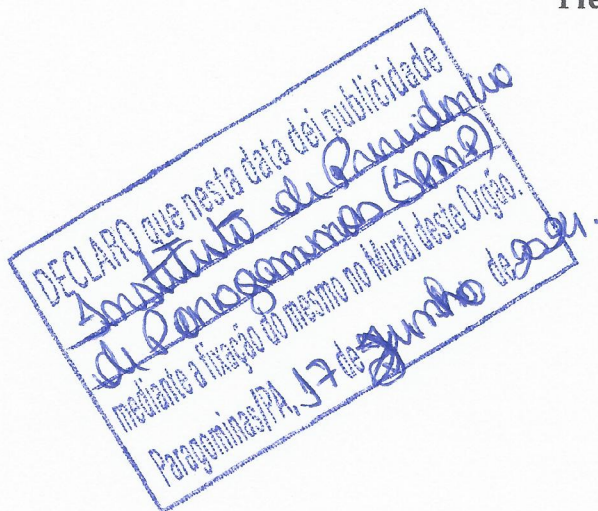 DECLARO que nesta data dei publicidade
Instituto de Previdencia
de Paragominas (IPMP)
mediante a fixação do mesmo no Mural deste Orgão.
Paragominas/PA, 17 de Junho de 2021.